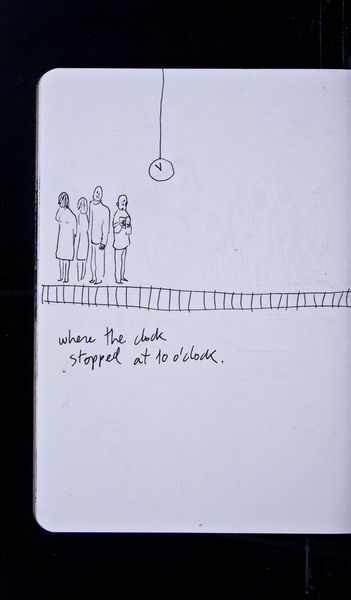 where the clock
stopped at 10 o'clock.